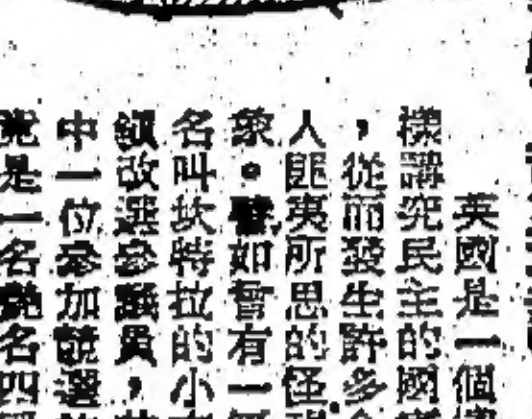 英國是一個
樣講究民主的國
，從而發生許多
人匪夷所思的怪
象。譬如曾有一
名叫坎特拉的小
鎮改選參議員，
中一位參加競選
是一名
名四